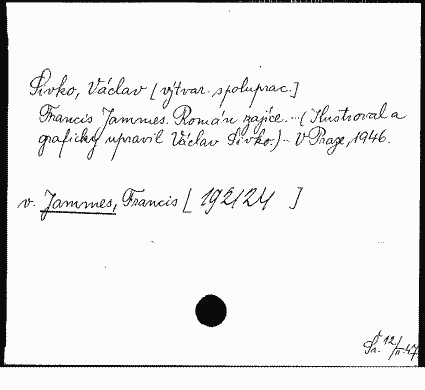 Sivko, Václav [výtvar. spoluprac.]
Francis Jammes. Román zajíce. ... (Ilustroval a
graficky upravil Václav Sivko.) .. V Praze, 1946.
v. Jammes, Francis [ 192124 ]
12/II.47